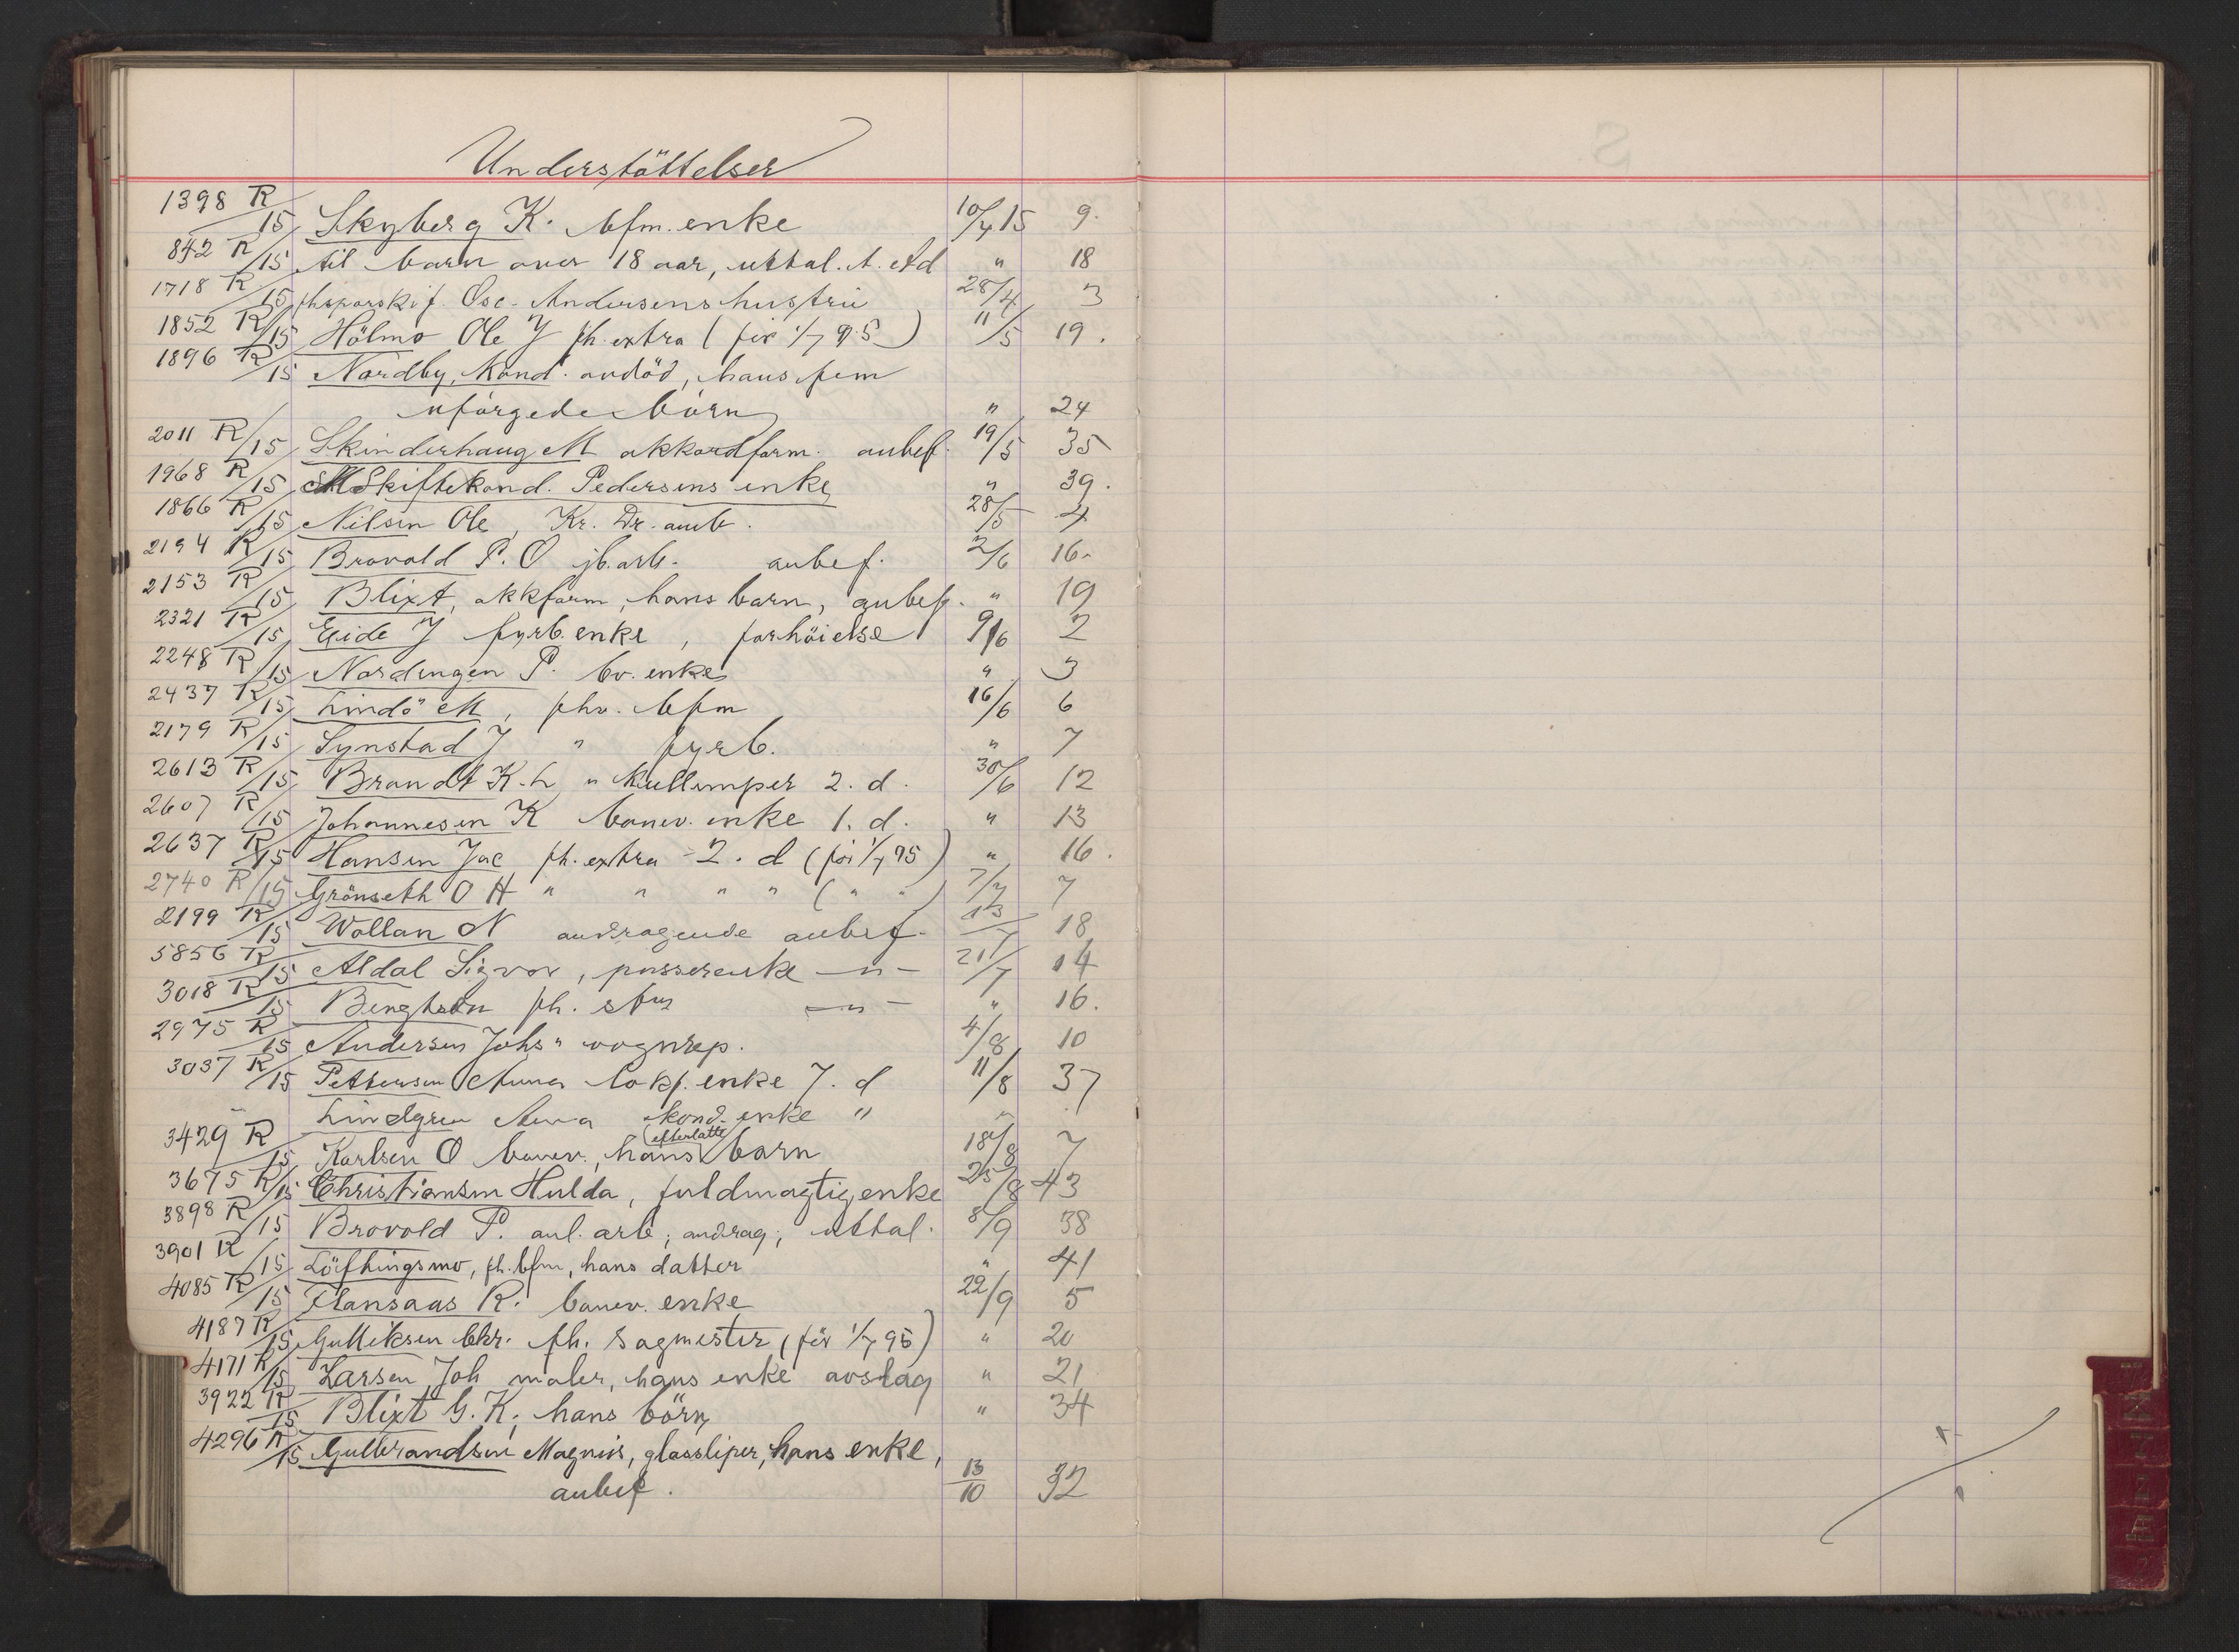 Understöttelser
1398 R/15 Skyberg K. bfm. enke 10/4 15 9.
842 R/15 til barn over 18 aar, uttal. A. Ad " 18
1718 R/15 Osc. Andersens hustru 28/4 3
1852 R/15 Hölmo Ole J fh. extra (før 1/7 95) 11/5 19.
1896 R/15 Nordby, Kond. avdöd, hans fem
uforgede börn " 24
2011 R/15 Skinderhaug M akkordform. anbef. 19/5 35
1968 R/15 Skiftekond. Pedersens enke " 39.
1866 R/15 Nilsen Ole, Kr. Dr. amb. 28/5 4
2194 R/15 Brovold P. O jb. arb. anbef. 2/6 16.
2153 R/15 Blixt, akkform, hans barn, anbef. " 19
2321 R/15 Eide J fyrb. enke, forhöielse 9/6 2
2248 R/15 Nordengen P. bv. enke " 3
2437 R/15 Lindö M, fhv. bfm 16/6 6
2179 R/15 Synstad J " fyrb. " 7
2613 R/15 Brandt K. L " Kullemper 2. d. 30/6 12
2607 R/15 Johannesen K banev. enke 1. d. " 13
2637 R/15 Hansen Jac fh. extra 2. d (för 1/7 95) " 16.
2740 R/15 Grönseth O H " " " " ( " " ) 7/7 7
2199 R/15 Wollan N andragende anbef. 13/7 18
5856 R/15 Aldal Sigvor, pusserenke —"— 21/7 14
3018 R/15 Bengtson fh. stm —"— " 16.
2975 R/15 Andersen Johs " vognrep. 4/8 10
3037 R/15 Pettersen Anna lokf. enke 7. d 11/8 37
" Lindgren Anna kond. enke " "
3429 R/15 Karlsen O banev., hans (efterlatte) barn 18/8 7
3675 R/15 Christiansen Hulda, fuldmagtigenke 25/8 43
3898 R/15 Brovold P. anl. arb; andrag; uttal. 8/9 38
3901 R/15 Löftingsmo, fh. bfm, hans datter " 41
4085 R/15 Flansaas R. banev. enke 22/9 5
4187 R/15 Gulliksen Chr. fh. sagmester (för 1/7 95) " 20
4171 R/15 Larsen Joh maler, hans enke avslag " 21
3922 R/15 Blixt G. K; hans börn " 34
4296 R/15 Gulbrandsen Magnus, glassliper, hans enke,
anbef. 13/10 32